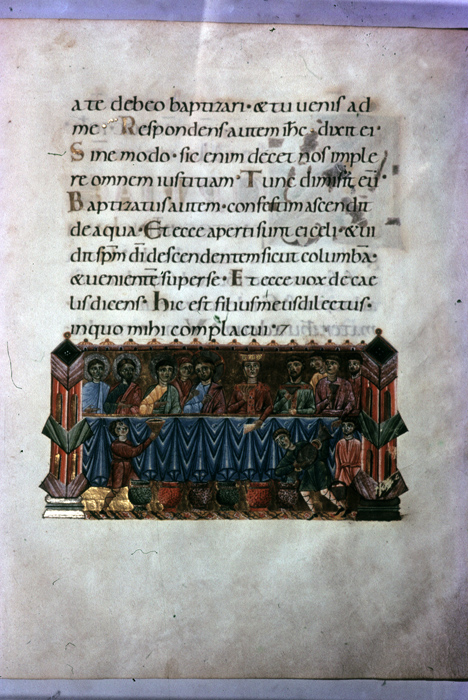 a te debeo baptizari · & tu uenis ad
me · Respondens autem ihc · dixit ei ·
Sine modo · sic enim decet nos imple
re omnem iustitiam · Tunc dimisit eū ·
Baptizatus autem · confestim ascendit
de aqua · Et ecce aperti sunt ei celi · & ui
dit spm di descendentem sicut columba ·
& uenientē super se · Et ecce uox de cae
lis dicens · hic est filius meus dilectus ·
in quo mihi complacui ·